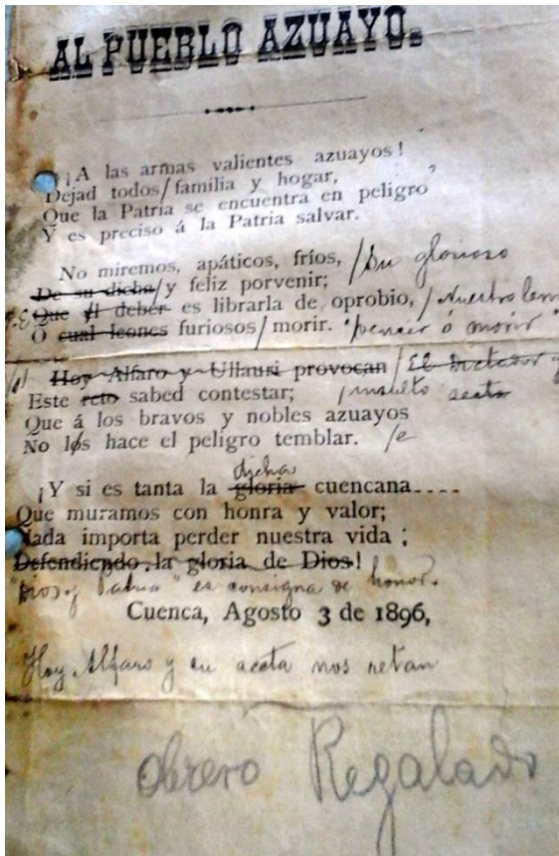 AL PUEBLO AZUAYO.
¡A las armas valientes azuayos!
Dejad todos/familia y hogar,
Que la Patria se encuentra en peligro
Y es preciso á la Patria salvar.
No miremos, apáticos, fríos, /Su glorioso
De su dicha/y feliz porvenir;
Que él deber es librarla de oprobio, /Nuestro
O cual leones furiosos/morir. "vencer ó morir"
Hoy Alfaro y Ullauri provocan /El Dictador y
Este reto sabed contestar; /insulto secta
Que á los bravos y nobles azuayos
No los hace el peligro temblar. /e
dicha
¡Y si es tanta la gloria cuencana....
Que muramos con honra y valor;
Nada importa perder nuestra vida;
Defendiendo, la gloria de Dios!
"Dios y Patria" es consigna de honor.
Cuenca, Agosto 3 de 1896,
Hoy Alfaro y su secta nos retan
obrero Regalado